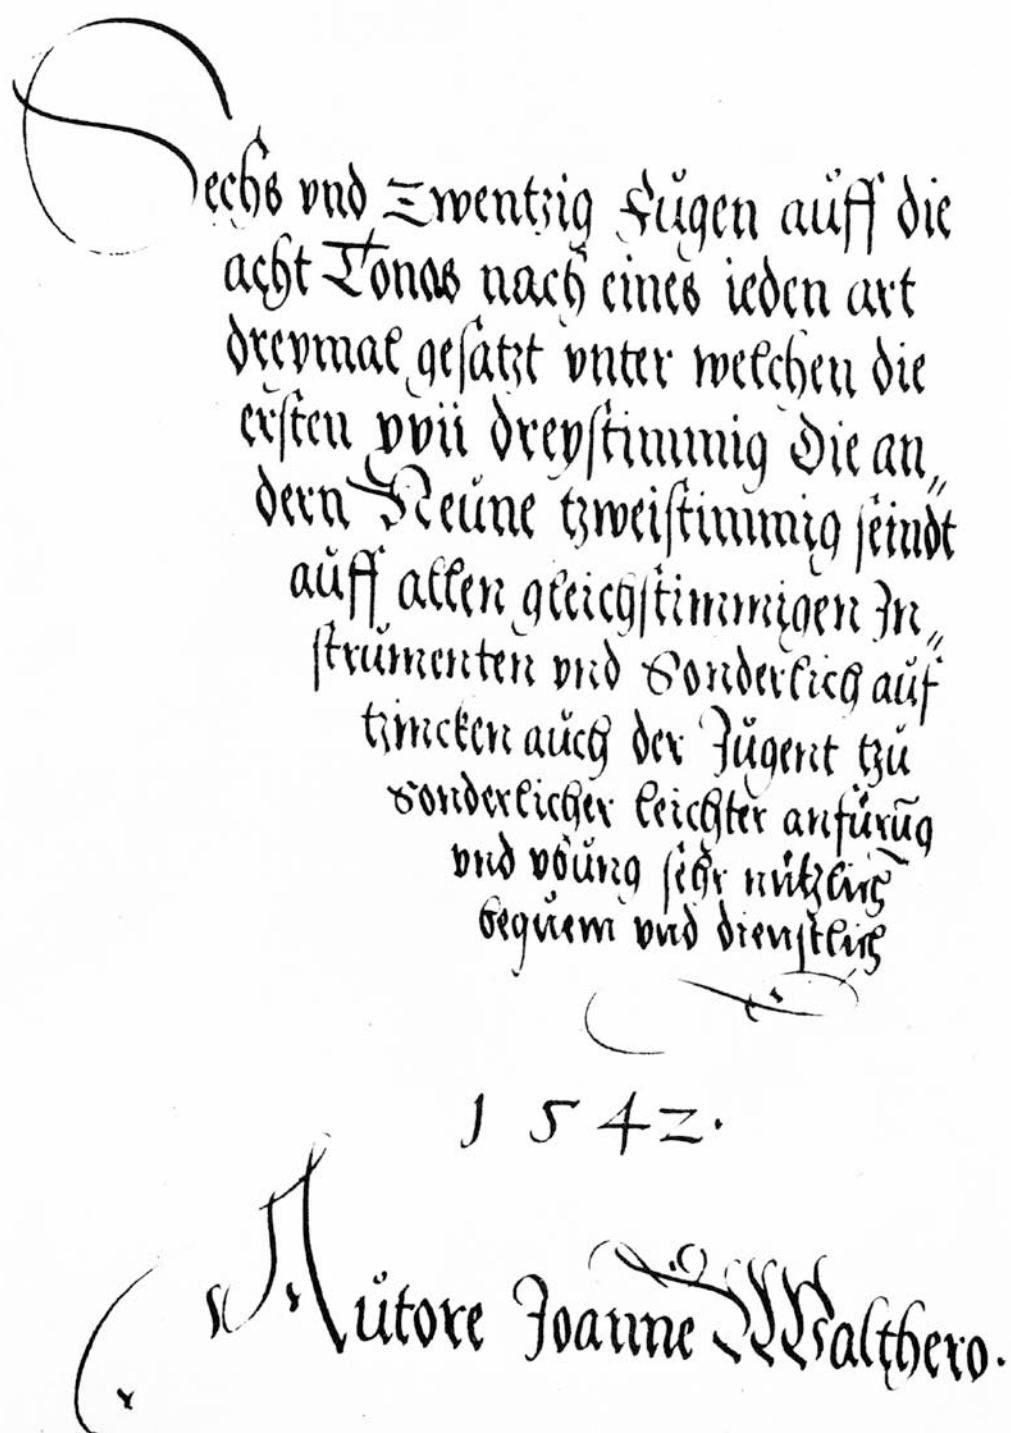 Sechs vnd Zwentzig Fůgen aůff die
acht Tonos nach eines ieden art
dreymal gesatzt vnter welchen die
ersten xvii dreystimmig Die an„
dern Neůne tzweistimmig seindt
aůff allen gleichstimmigen In„
strůmenten vnd Sonderlich aůf
tzincken aůch der Jůgent tzů
sonderlicher leichter anfürūg
vnd vbůng sehr nützlich
bequem vnd dienstlich
1542.
Aůtore Joanne Walthero.